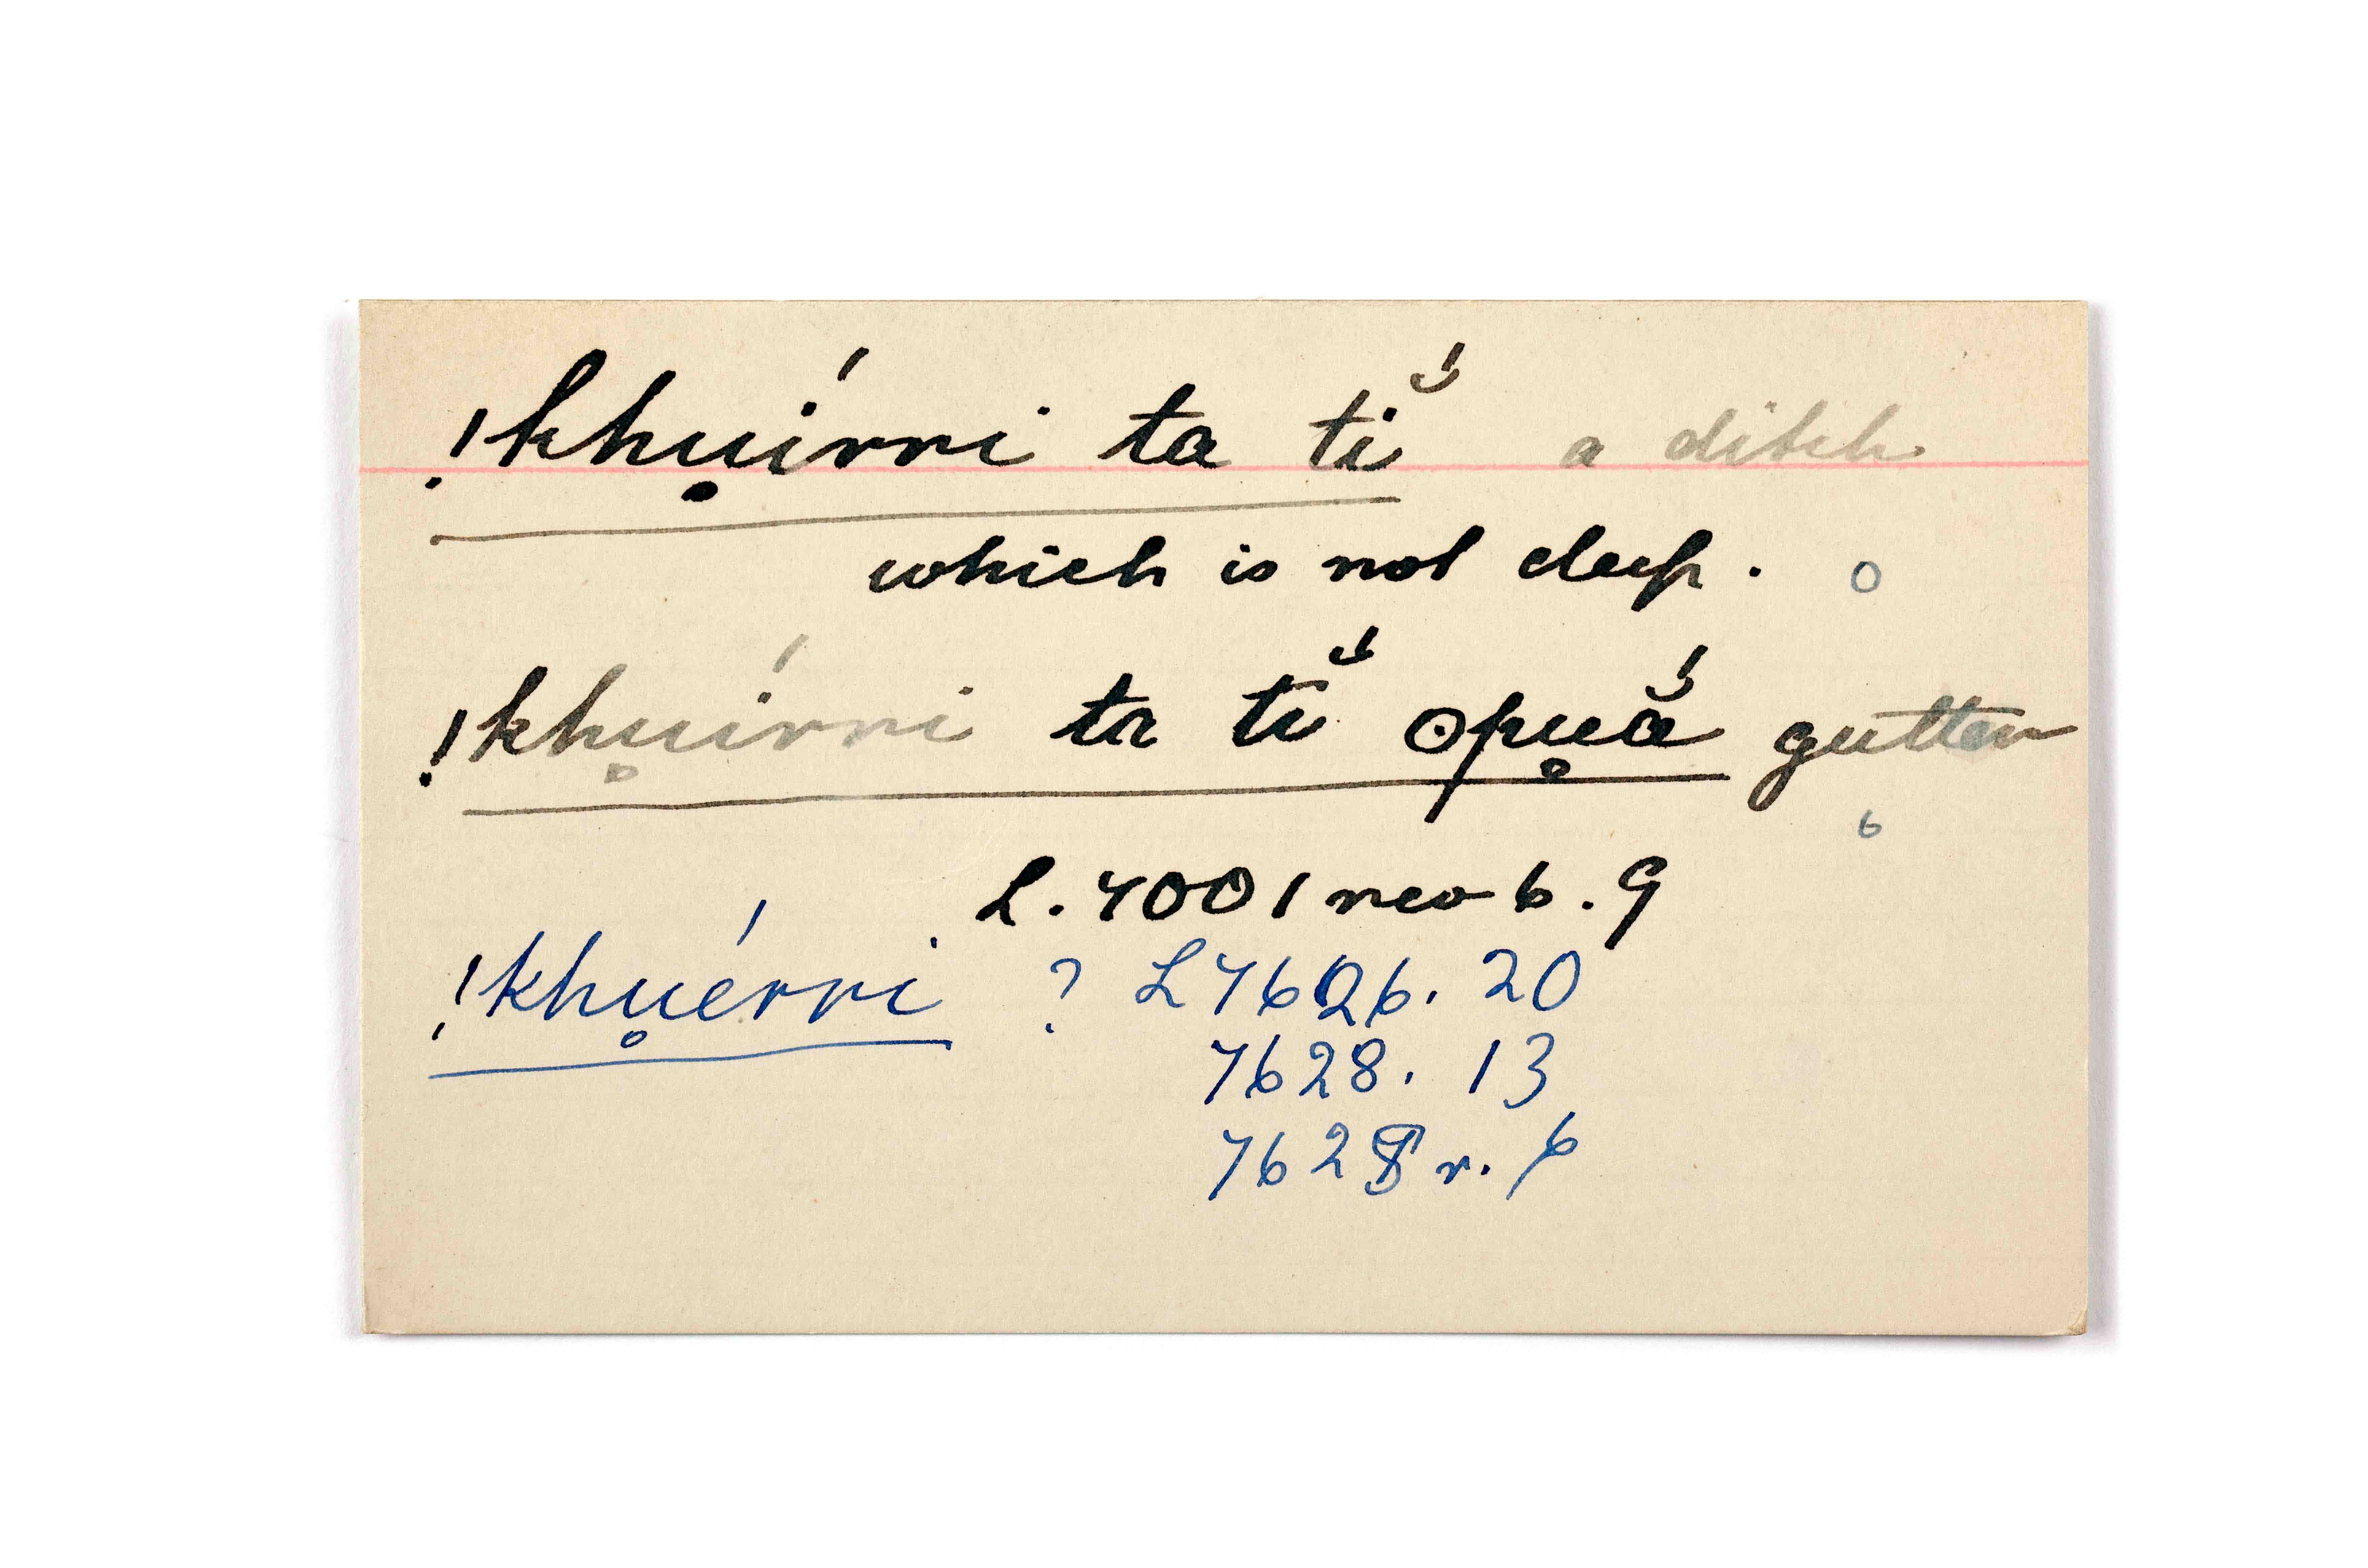 !khu̥írri ta tĭ́ a ditch
which is not deep. o
!khu̥írri ta tĭ́ ʘpu̥ắ gutter
b
L. 4001 rev b. 9
!khu̥érri ? L 7626. 20
7628. 13
7628 r. 6